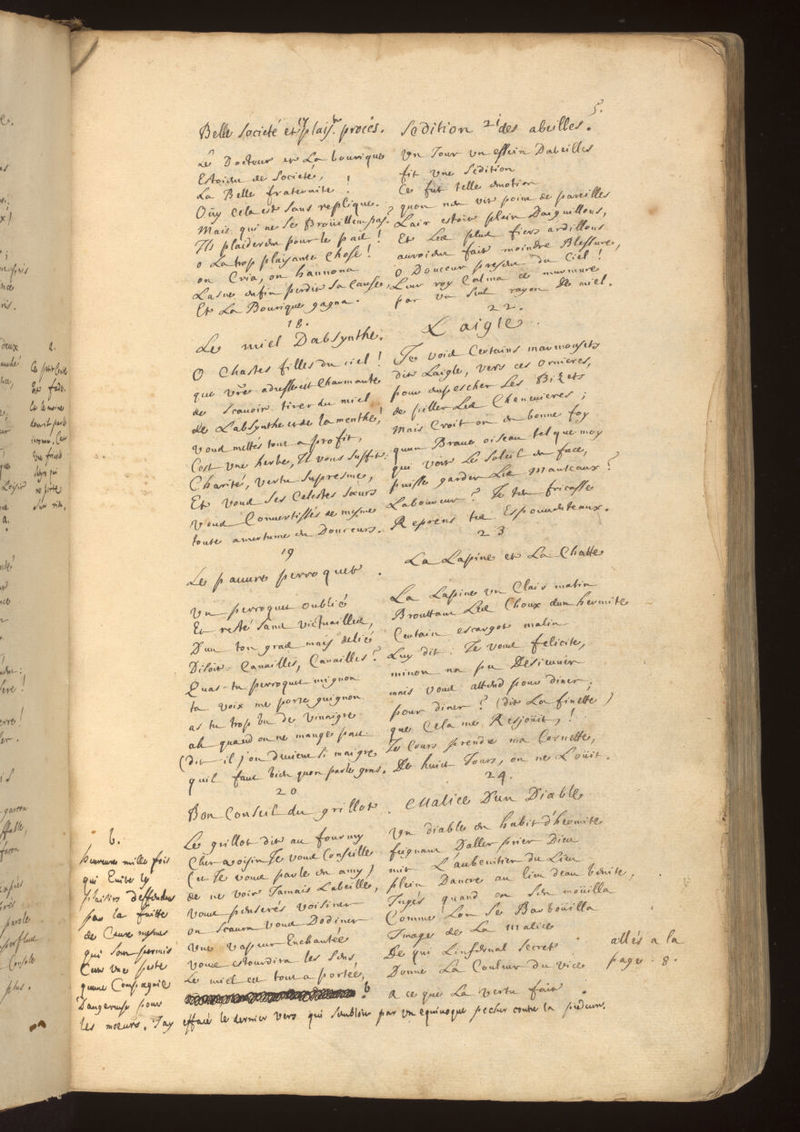 5.
Belle Societé et plais. procés.
Le Docteur et La bourique
Estoient de Societé,
La Belle fraternité !
Oüy cela est sans replique.
Mais qui ne se Broüillent pas ?
Ils plaiderent pour le pait !
o La trop plaisante Chose !
on Cria, on hannona
Lasne enfin perdit sa Cause,
Et La Bourique gagna.
18.
Le miel D'absynthe.
O Chastes filles du ciel !
que vre adresse est charmante
de scavoir tirer du miel
de L'absynthe et de la menthe !
vous mettés tout a profit,
C'est une herbe, Il vous suffit :
Charité, vertu supresme,
Et vous ses celestes sœurs
vous Convertissés de mesme
toute amertume en Douceurs.
19
Le pauvre perroquet.
Un perroquet oublié
Et resté sans victuailles,
D'un ton gras mais delié
Disoit. Canailles, Canailles ?
Quas-tu perroquet mignon
ta voix me porte guignon
as tu trop bu de vinaigre
ah quand on ne mange pas
(dit-il) on devient si maigre
quil faut bien quon parle gras.
20
Bon Conseil du grillot.
Le grillot dit au fourmy
Cher voisin Je vous Conseille
(et Je vous parle en amy)
de ne voir Jamais L'abeille,
vous penserés voisiner
on scaura vous Dodiner
une vapeur Enchantée
vous estourdira les sens,
Le miel est tout a portée,
b
Sedition 21 des abeilles.
Un Jour un essein Dabeilles
fit une Sedition
Ce fut telle emotion
quon nen vit point de pareilles
Lair estoit plein Daiguillons,
Et Les plus fiers ardillons
auroient fait moindre Blessure,
O Douceur presens du Ciel !
Leur roy Calma ce murmure
par un seul rayon de miel.
22.
L'aigle.
Je vois Certains marmousets
dit Laigle, vers ces ornieres,
pour empescher Les Bizets
de piller Les Chenevieres ;
Mais Croit on en bonne foy
quun Brave oiseau tel que moy
qui voit Le Soleil en face,
puisse garder Les manteaux ?
Laboureur ? Je ten fricasse
Reprens tes Espouventeaux.
23
La Lapine et La Chatte
La Lapine un Clair matin
Brouttant Les Choux d'un hermite
Certain escargot malin
Luy dit : Je vous felicite,
minon na pu Desieuner
mais vous attend pour diner ;
pour diner ? (dit La finette)
que Cela me Resjoüit, !
Je Cours prendre ma Cornette,
De huit Jours, on ne L'oüit.
24.
Malice D'un Diable
Un diable en habit d'hermite
feignant D'aller prier Dieu
mit L'aubenitier du Lieu
plein Dancre au lieu deau benite,
Jugés quand on sen moüilla
Comme Lon se Barboüilla
Image de La malice
De qui Linfernal Secret
Donne La Couleur du vice
a ce que La vertu fait.
allés a la
page. 8.
b.
heureux mille fois
qui Evite
plaisirs deffendus
par la fuitte
de Ceux mesmes
qui sont permis
C'est une peste
quune Compagnie
Dangereuse pour
les mœurs. J'ay effacé le dernier vers qui sembloit par un equivoque pecher contre la pudeur.